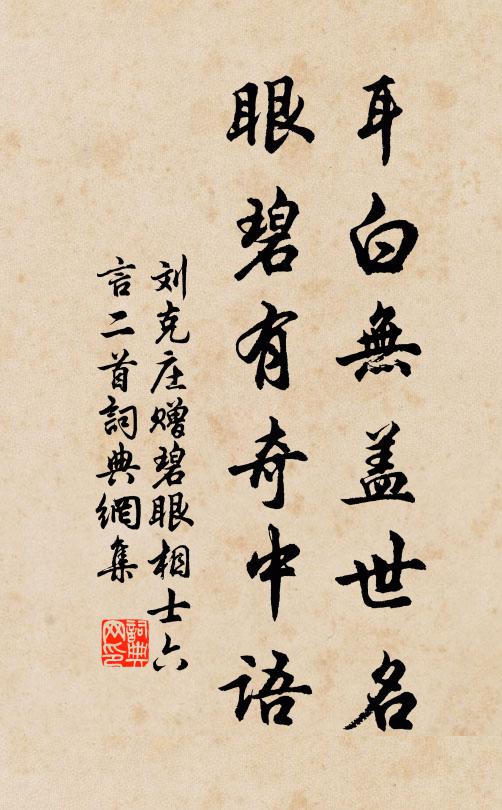 耳白無盖世名
眼碧有奇中語
刘克庄赠碧眼相士六
言二首詞典網集
詞典网印